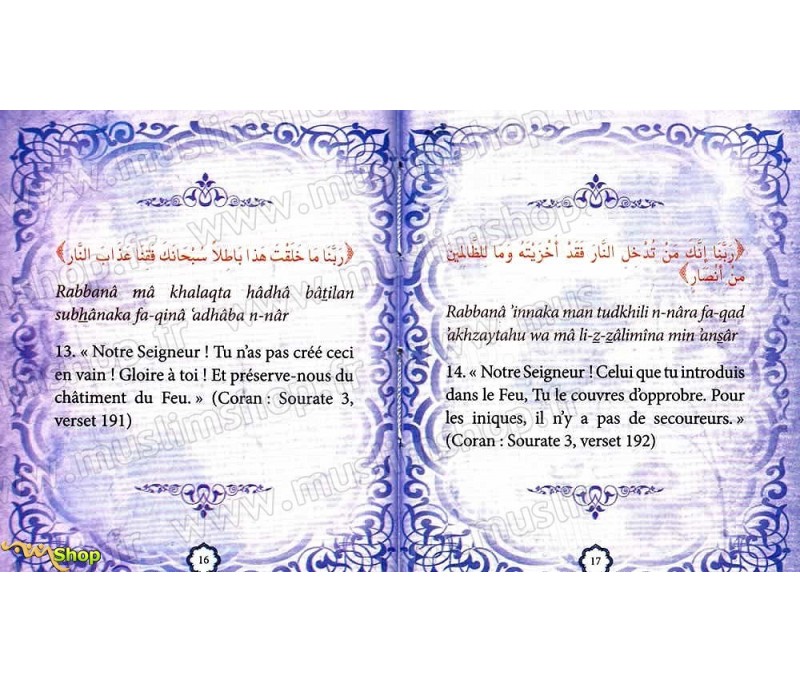 ﴿رَبَّنَا مَا خَلَقْتَ هَذَا بَاطِلاً سُبْحَانَكَ فَقِنَا عَذَابَ النَّارِ﴾
Rabbanâ mâ khalaqta hâdhâ bâṯilan
subẖânaka fa-qinâ ‘adhâba n-nâr
13. « Notre Seigneur ! Tu n’as pas créé ceci
en vain ! Gloire à toi ! Et préserve-nous du
châtiment du Feu. » (Coran : Sourate 3,
verset 191)
16
﴿رَبَّنَا إِنَّكَ مَنْ تُدْخِلِ النَّارَ فَقَدْ أَخْزَيْتَهُ وَمَا لِلظَّالِمِينَ
مِنْ أَنْصَارٍ﴾
Rabbanâ ’innaka man tudkhili n-nâra fa-qad
’akhzaytahu wa mâ li-ẕ-ẕâlimîna min ’anṣâr
14. « Notre Seigneur ! Celui que tu introduis
dans le Feu, Tu le couvres d’opprobre. Pour
les iniques, il n’y a pas de secoureurs. »
(Coran : Sourate 3, verset 192)
17
www.muslimshop.fr
Shop